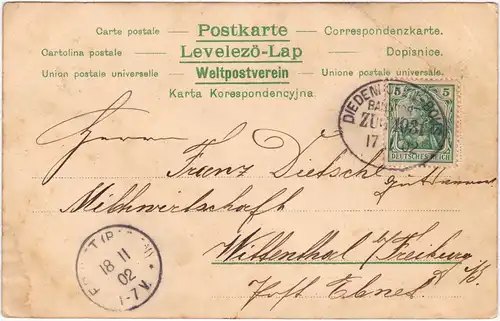 Carte postale Postkarte Correspondenzkarte.
Cartolina postale Levelezö-Lap Dopisnice.
Union postale universelle Weltpostverein Unione postale universale.
Karta Korespondencyjna.
5 5
ZUG 1031
17
DEUTSCHES REICH
Herrn
Franz Dietsche
Wittenthal b/Freiburg
Post Ebnet
18 11
02
1-7V.